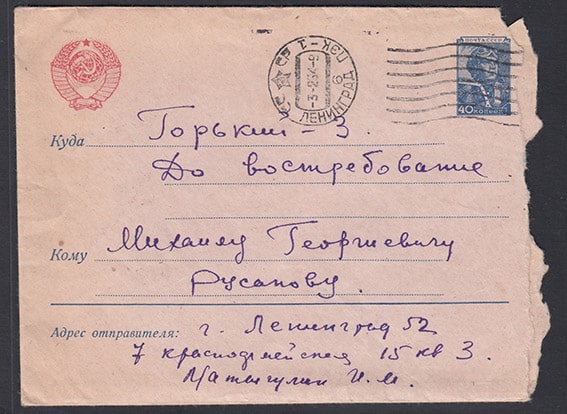 ПОЧТА СССР
40 КОПЕЕК
ЛЕНИНГРАД
Куда Горький – 3.
До востребование.
Кому Михаилу Георгиевичу
Русанову.
Адрес отправителя: г. Ленинград 52
7 красноармейская 15 кв 3.
И. М.